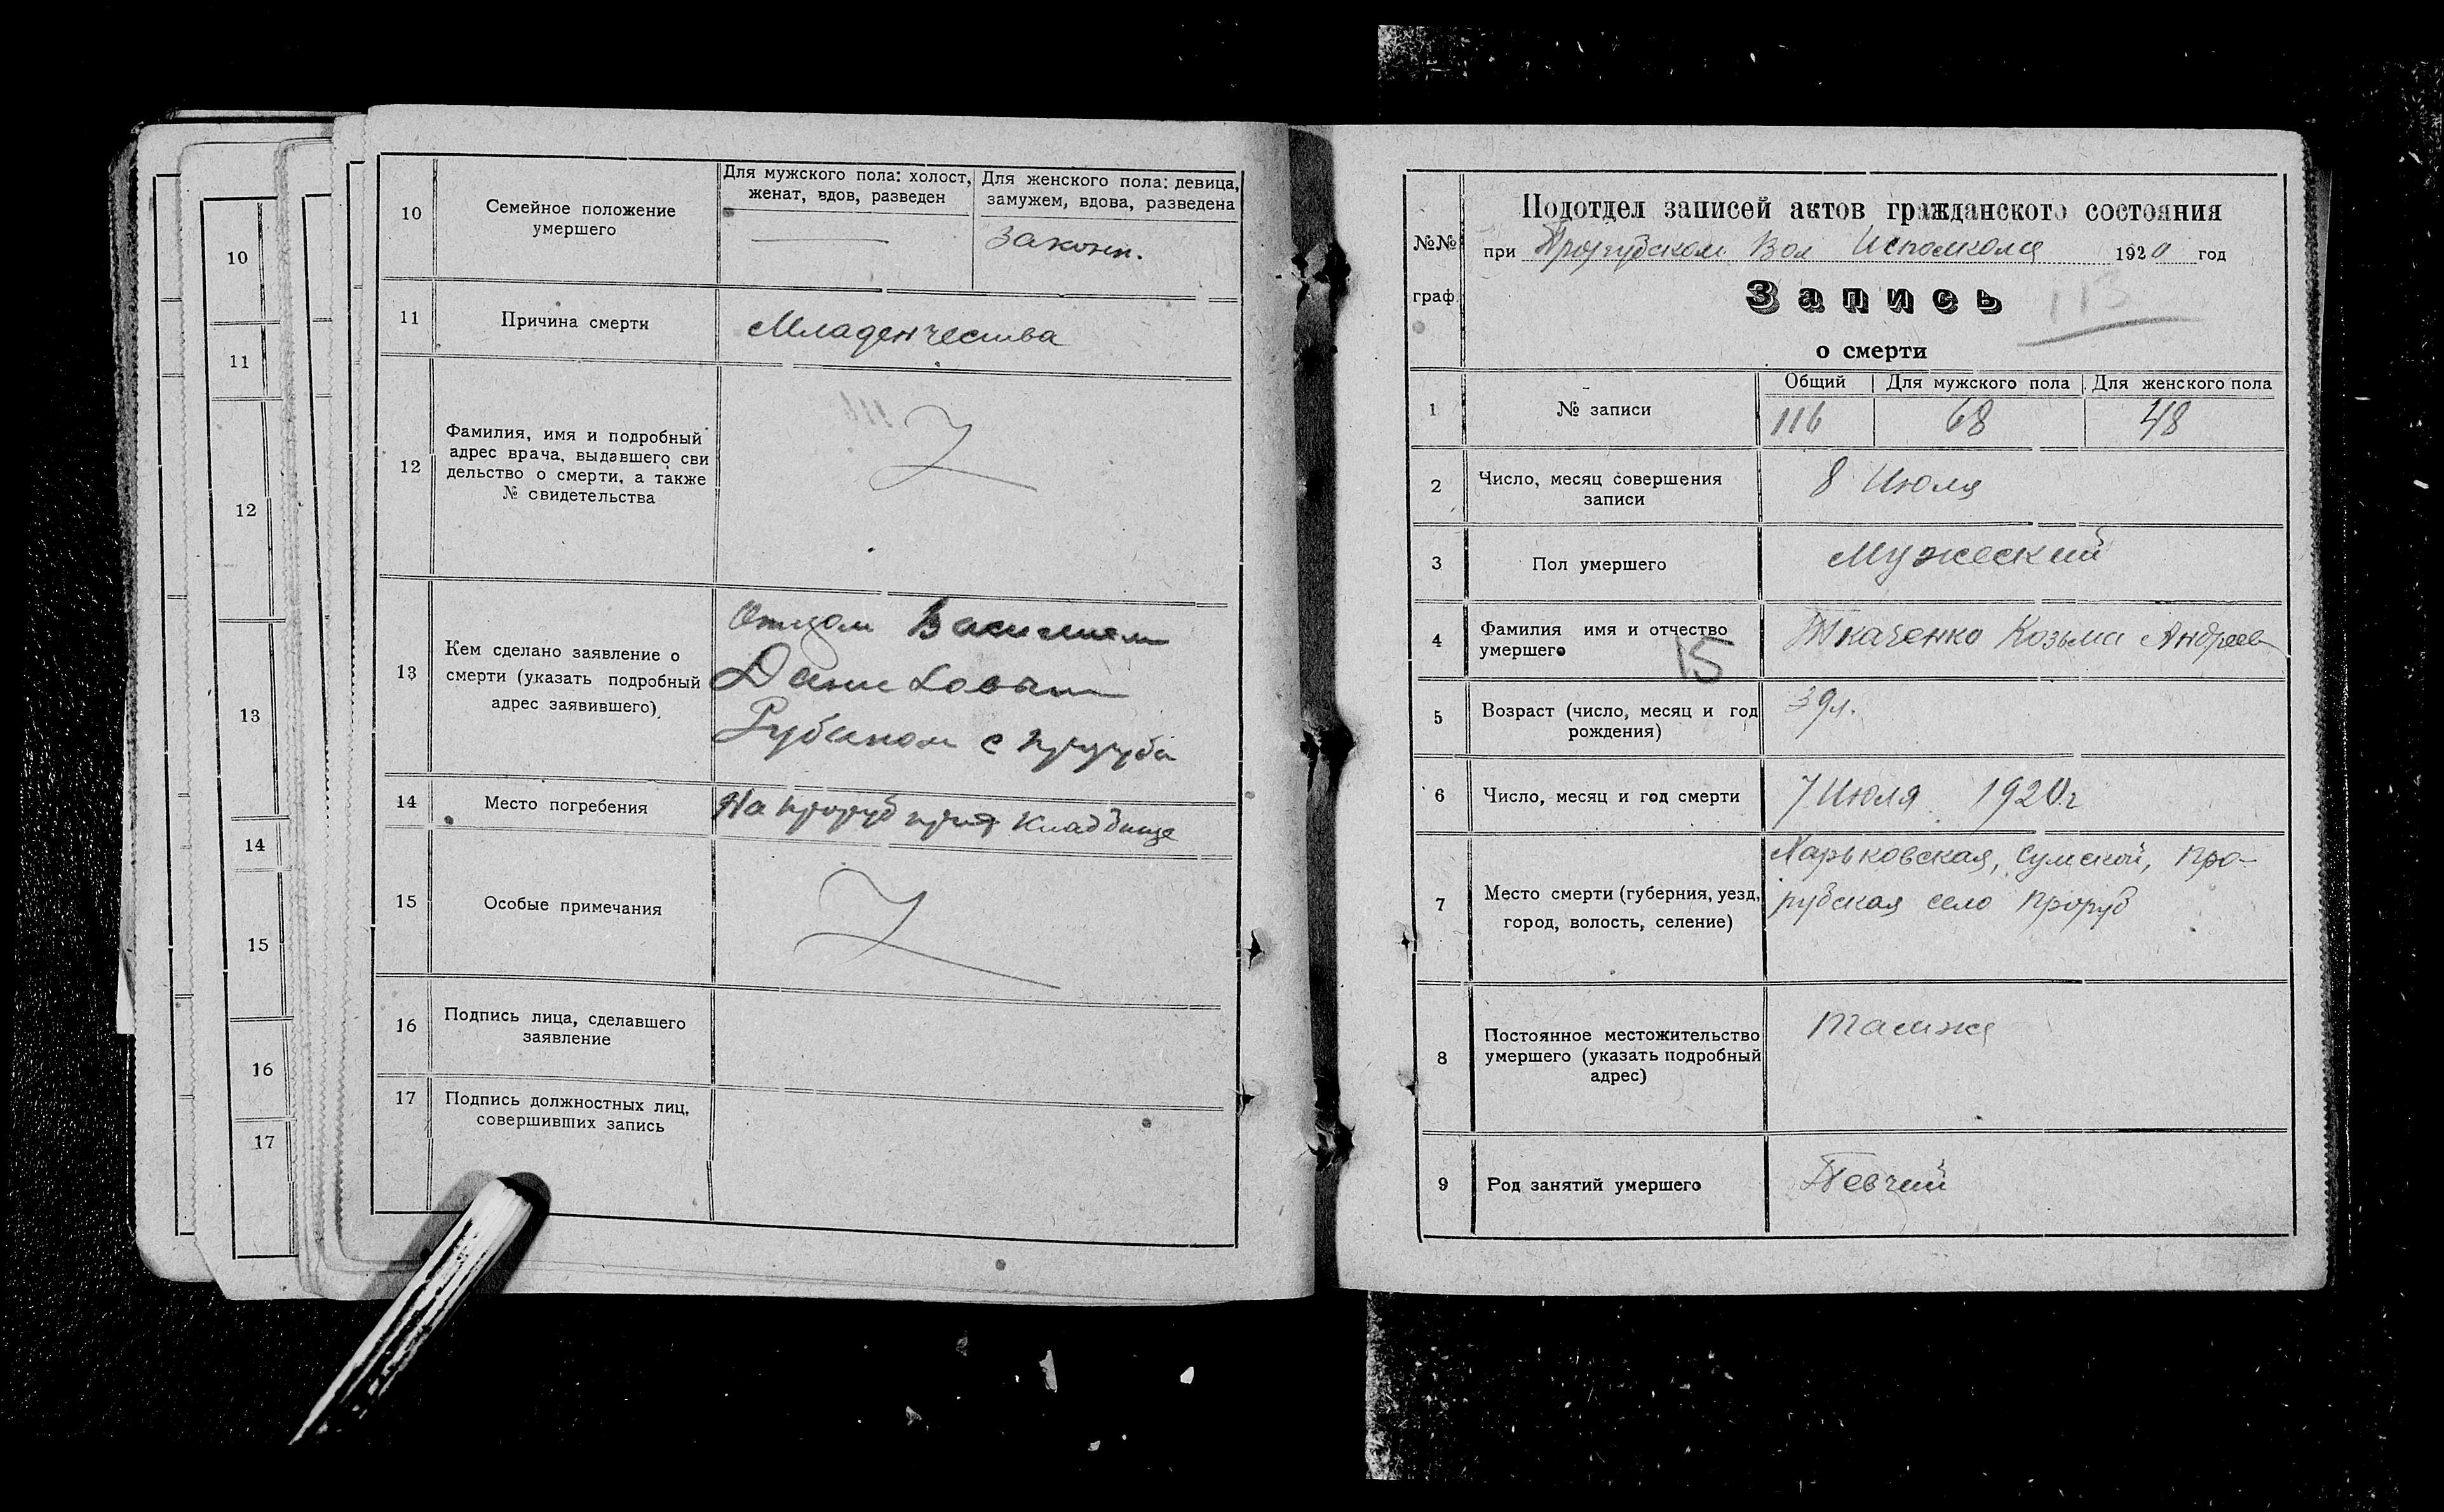 10
11
12
13
14
15
16
17
10
Семейное положение
умершего
Для мужского пола: холост,
женат, вдов, разведен
Для женского пола: девица,
замужем, вдова, разведена
законн.
11
Причина смерти
Младенчества
12
Фамилия, имя и подробный
адрес врача, выдавшего сви
дельство о смерти, а также
№ свидетельства
13
Кем сделано заявление о
смерти (указать подробный
адрес заявившего)
Отцом Василием
Даниловым
Рубаном с
14
Место погребения
На Кладбище
15
Особые примечания
16
Подпись лица, сделавшего
заявление
17
Подпись должностных лиц,
совершивших запись
№№
граф.
Подотдел записей актов гражданского состояния
при Прорубском Вол Исполкома 1920 год
Запись
113
о смерти
1
№ записи
Общий
Для мужского пола
Для женского пола
116
68
48
2
Число, месяц совершения
записи
8 Июля
3
Пол умершего
Мужеский
4
Фамилия имя и отчество
умершего
15
Ткаченко Козьма Андреев
5
Возраст (число, месяц и год
рождения)
39л.
6
Число, месяц и год смерти
7 Июля 1920г
7
Место смерти (губерния, уезд,
город, волость, селение)
Харьковская, Сумской, Про-
рубская село Проруб
8
Постоянное местожительство
умершего (указать подробный
адрес)
тамже
9
Род занятий умершего
Певчий